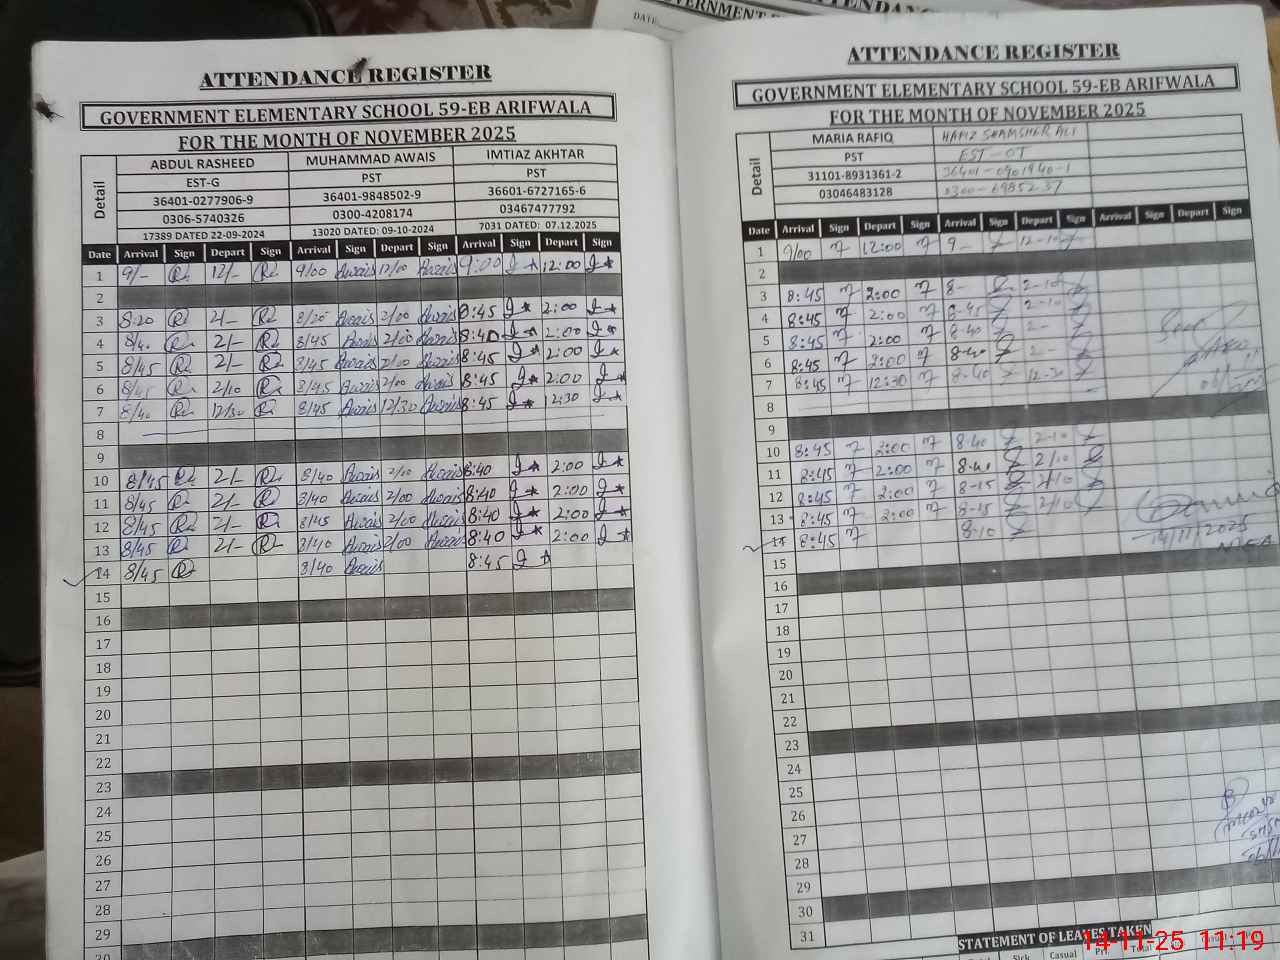 ATTENDANCE REGISTER
GOVERNMENT ELEMENTARY SCHOOL 59-EB ARIFWALA
FOR THE MONTH OF NOVEMBER 2025
Detail
ABDUL RASHEED MUHAMMAD AWAIS IMTIAZ AKHTAR
EST-G PST PST
36401-0277906-9 36401-9848502-9 36601-6727165-6
0306-5740326 0300-4208174 03467477792
17389 DATED 22-09-2024 13020 DATED: 09-10-2024 7031 DATED: 07.12.2025
Date Arrival Sign Depart Sign Arrival Sign Depart Sign Arrival Sign Depart Sign
1 9/- 12/- 9/00 Awais 12/00 Awais 9:00 12:00
2
3 8.20 2/- 8/20 Awais 2/00 Awais 8:45 2:00
4 8/40 2/- 8/45 Awais 2/00 Awais 8:40 2:00
5 8/45 2/- 8/45 Awais 2/00 Awais 8:45 2:00
6 8/45 2/10 8/45 Awais 2/00 Awais 8:45 2:00
7 8/40 12/30 8/45 Awais 12/30 Awais 8:45 12:30
8
9
10 8/45 2/- 8/40 Awais 2/00 Awais 8:40 2:00
11 8/45 2/- 8/40 Awais 2/00 Awais 8:40 2:00
12 8/45 2/- 8/45 Awais 2/00 Awais 8:40 2:00
13 8/45 2/- 8/40 Awais 2/00 Awais 8:40 2:00
14 8/45 8/40 Awais 8:45
15
16
17
18
19
20
21
22
23
24
25
26
27
28
29
30
DATE
ATTENDANCE
ATTENDANCE REGISTER
GOVERNMENT ELEMENTARY SCHOOL 59-EB ARIFWALA
FOR THE MONTH OF NOVEMBER 2025
Detail
MARIA RAFIQ HAFIZ SHAMSHER ALI
PST EST-OT
31101-8931361-2 36401-0901940-1
03046483128 0300-6985237
Date Arrival Sign Depart Sign Arrival Sign Depart Sign Arrival Sign Depart Sign
1 9/00 12:00 9- 12-10
2
3 8:45 2:00 8- 2-10
4 8:45 2:00 8-45 2-10
5 8:45 2:00 8-40 2-
6 8:45 2:00 8-40 2-
7 8:45 12:30 8-40 12-30
8
9
10 8:45 2:00 8-40 2-10
11 8:45 2:00 8-40 2/10
12 8:45 2:00 8-15 2/10
13 8:45 2:00 8-15 2/10
14 8:45 8-10
14/11/2025
15
16
17
18
19
20
21
22
23
24
25
26
27
28
29
30
31
STATEMENT OF LEAVES TAKEN
Sick Casual
14-11-25 11:19